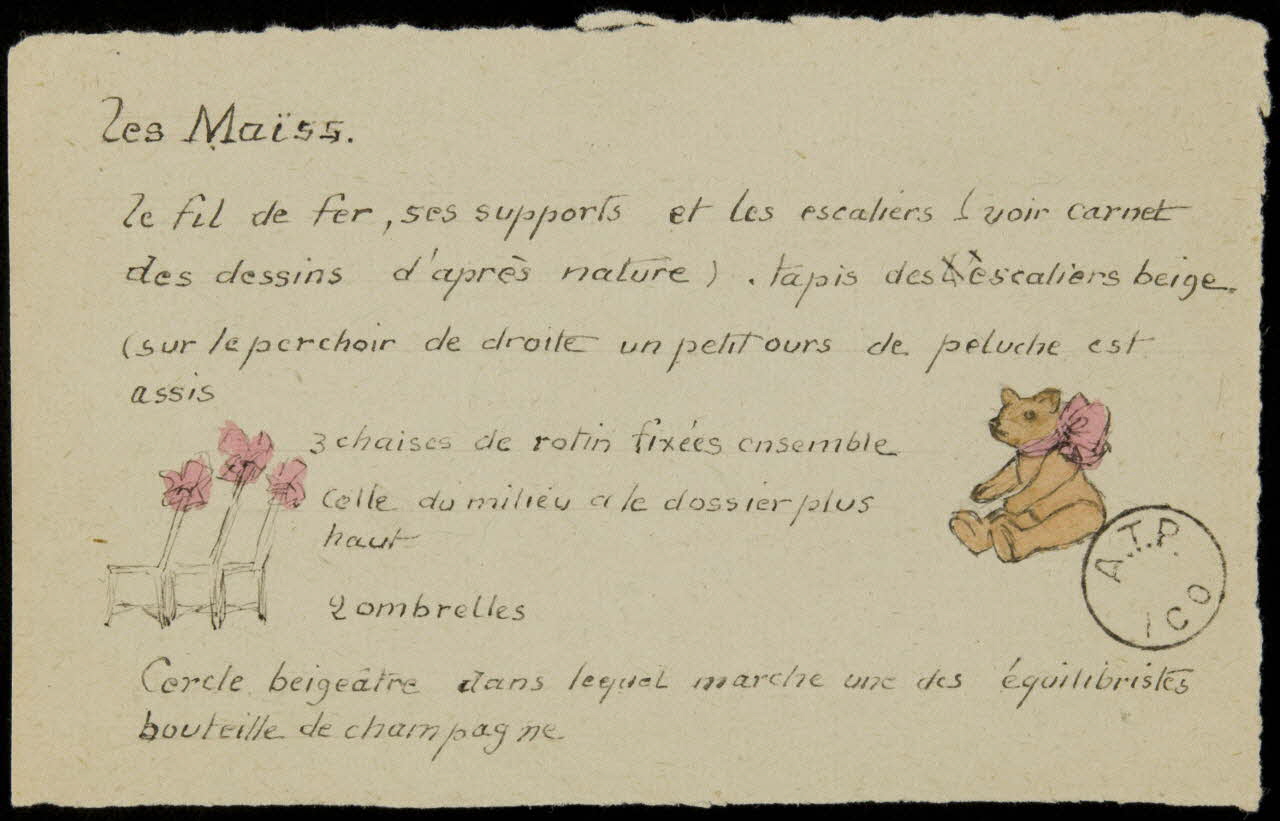 les Maïss.
le fil de fer, ses supports et les escaliers (voir carnet
des dessins d'après nature). tapis des escaliers beige.
(sur le perchoir de droite un petit ours de peluche est
assis
3 chaises de rotin fixées ensemble
Celle du milieu a le dossier plus
haut
2 ombrelles
Cercle beigeâtre dans lequel marche une des équilibristes
bouteille de champagne
A.T.P.
ICO